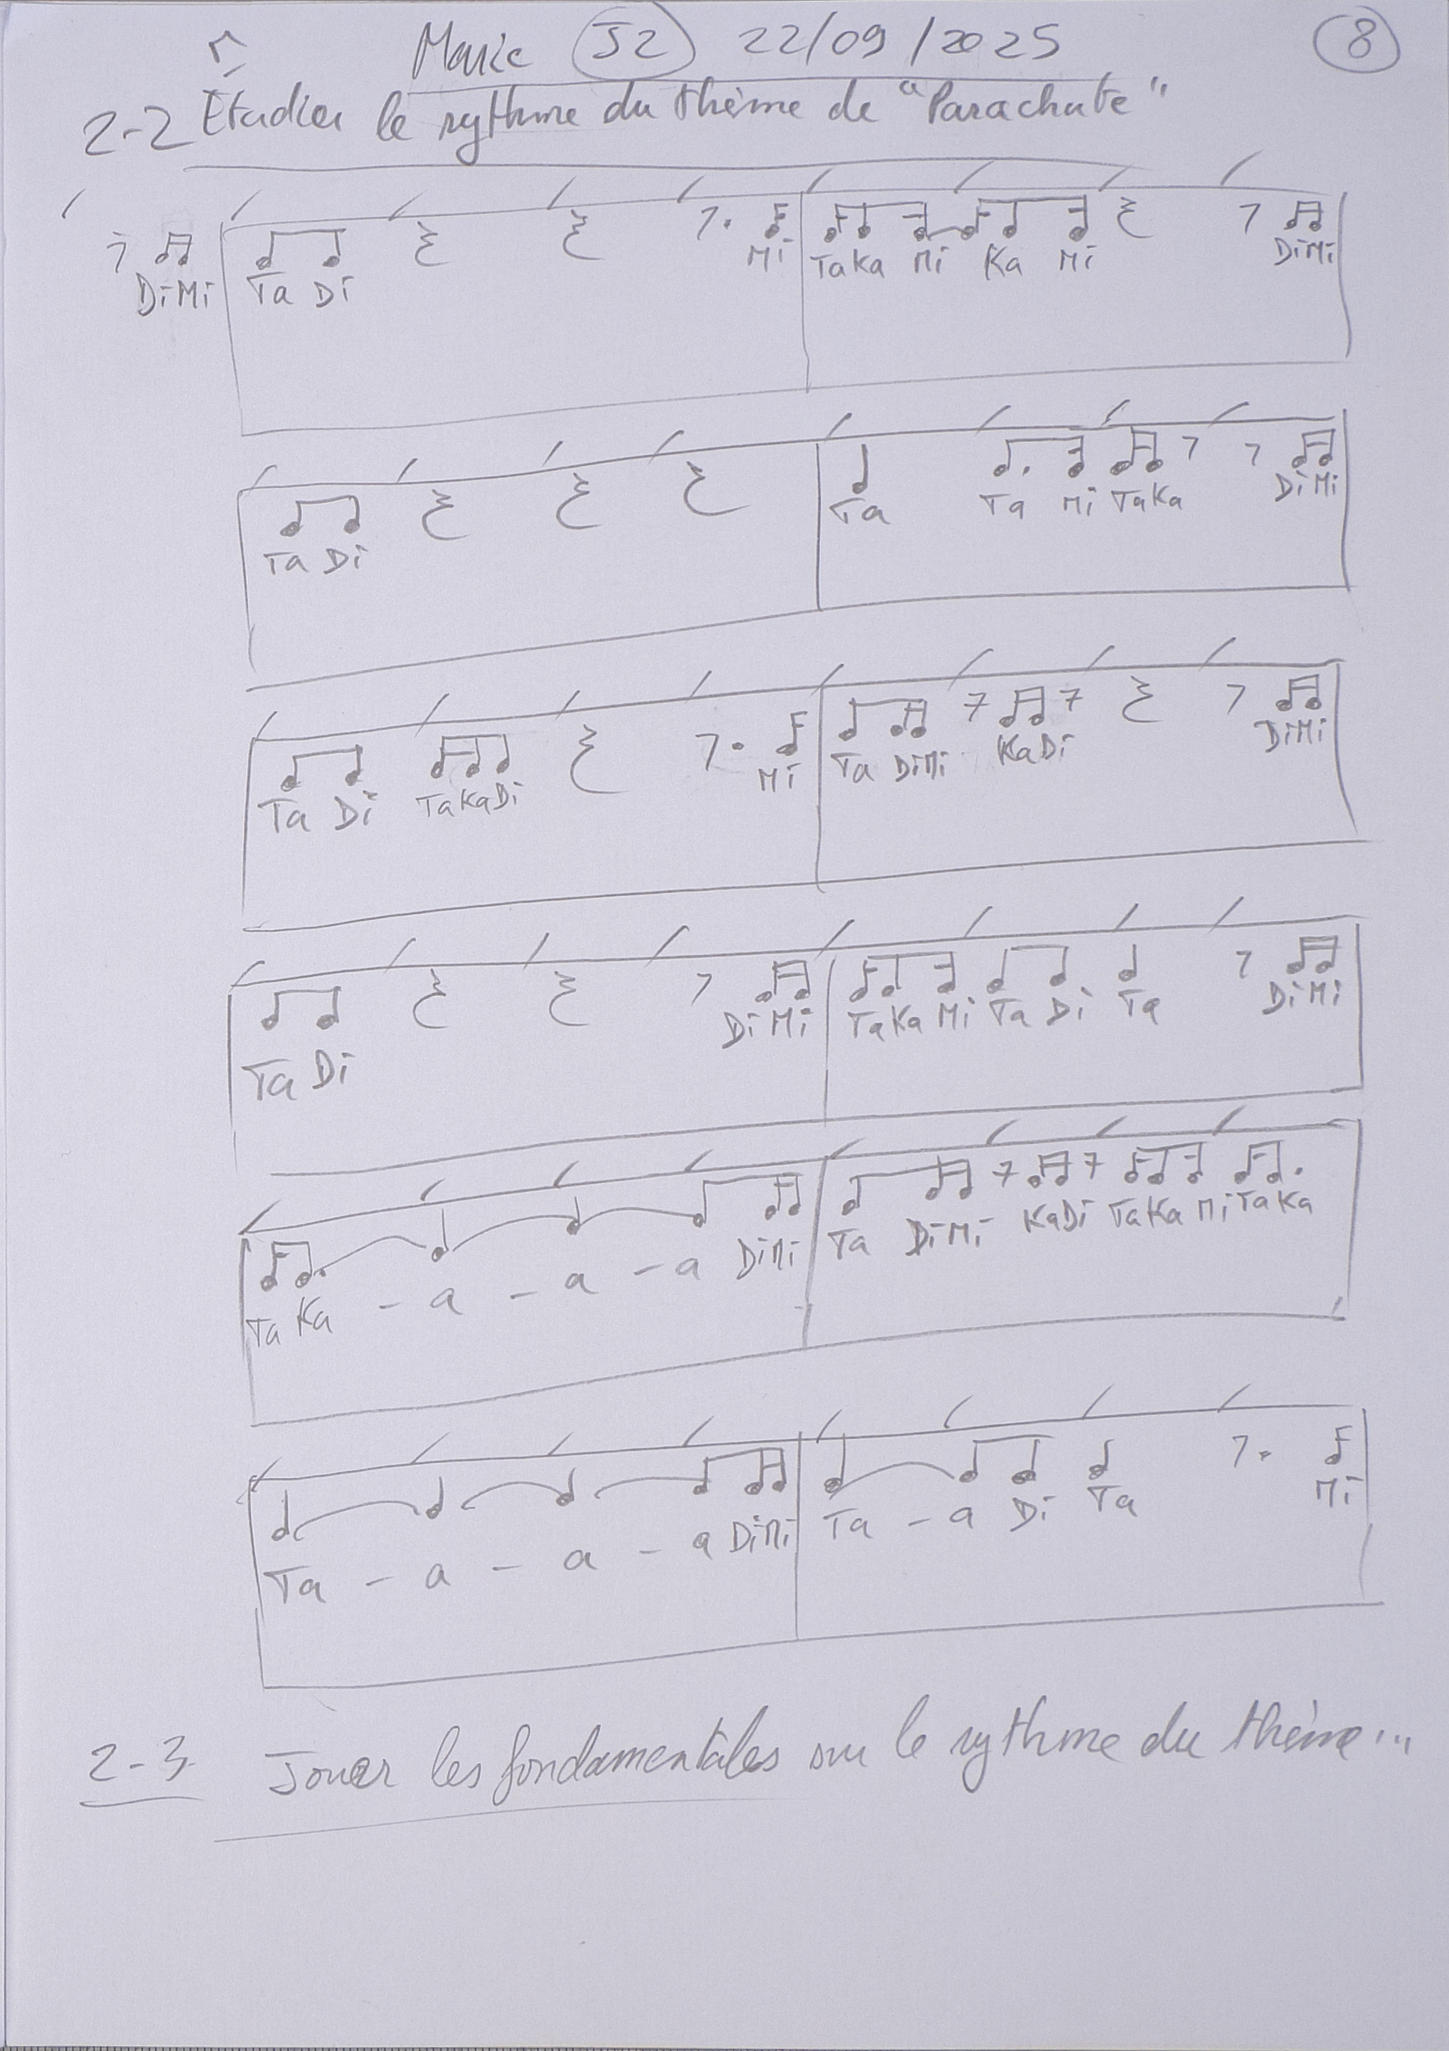 Marie J2 22/09/2025 8
2-2 Etudier le rythme du thème de "Parachute"
DiMi Ta Di Mi TaKa Mi Ka Mi DiMi
Ta Di Ta Ta Mi TaKa DiMi
Ta Di TaKaDi Mi Ta DiMi KaDi DiMi
Ta Di DiMi TaKa Mi Ta Di Ta DiMi
Ta Ka - a - a - a DiMi Ta DiMi KaDi TaKa Mi TaKa
Ta - a - a - a DiMi Ta - a Di Ta Mi
2-3 Jouer les fondamentales sur le rythme du thème...